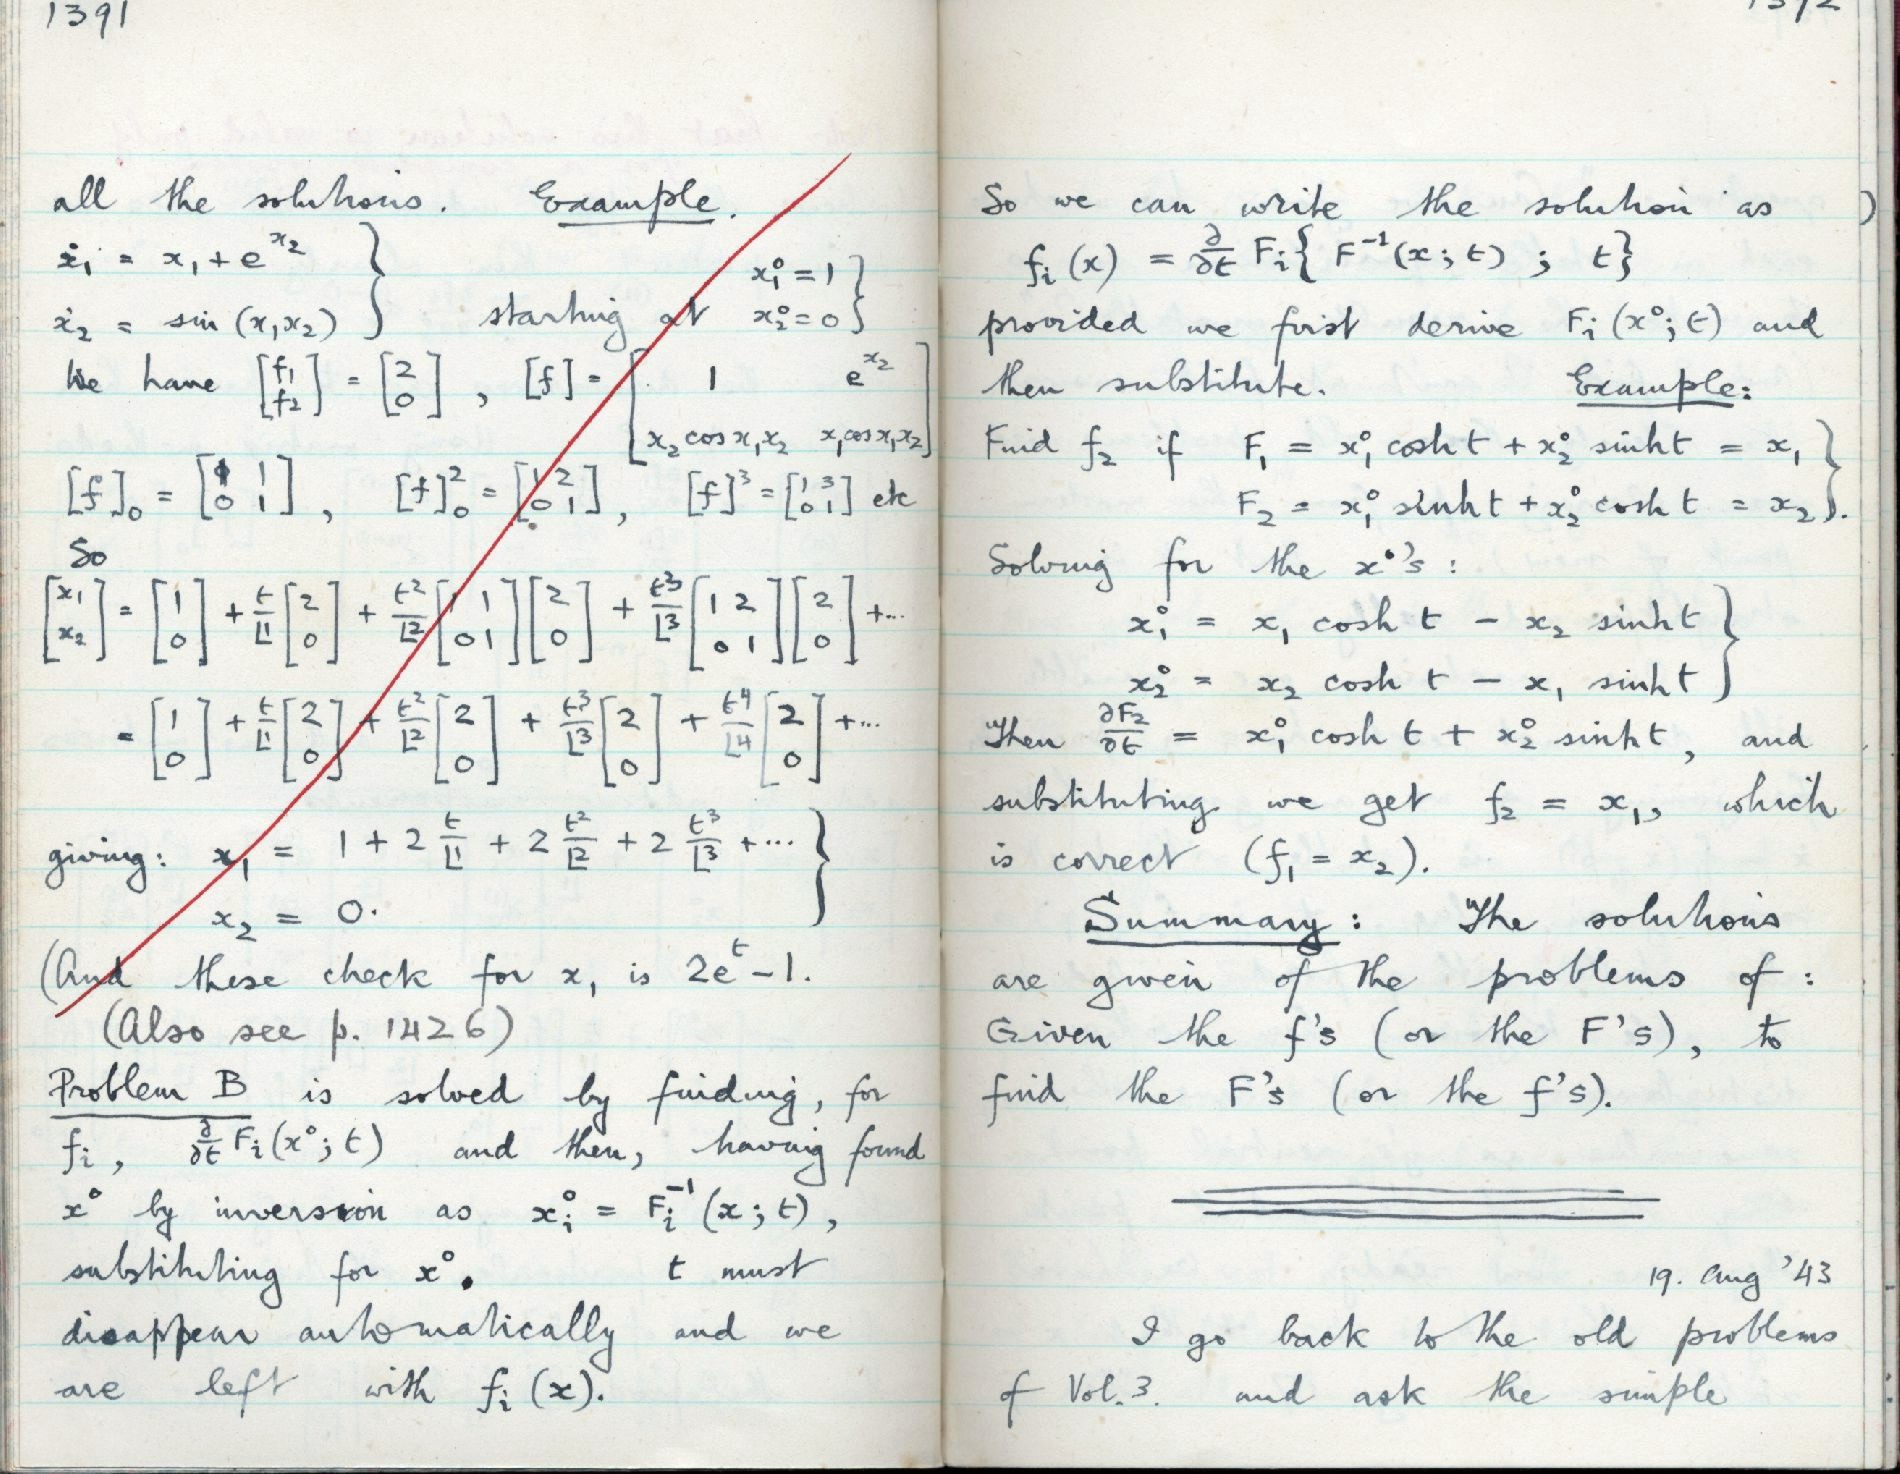 1391
all the solutions. Example.
ẋ₁ = x₁ + e^x₂ }
ẋ₂ = sin (x₁x₂) } starting at x₁° = 1 } x₂° = 0 }
We have [f₁ f₂] = [2 0], [f] = [1 e^x₂ x₂ cos x₁x₂ x₁ cos x₁x₂]
[f]₀ = [1 1 0 1], [f]₀² = [1 2 0 1], [f]³ = [1 3 0 1] etc
So
[x₁ x₂] = [1 0] + t/⌊1 [2 0] + t²/⌊2 [1 1 0 1] [2 0] + t³/⌊3 [1 2 0 1] [2 0] + ...
= [1 0] + t/⌊1 [2 0] + t²/⌊2 [2 0] + t³/⌊3 [2 0] + t⁴/⌊4 [2 0] + ...
giving: x₁ = 1 + 2 t/⌊1 + 2 t²/⌊2 + 2 t³/⌊3 + ... }
x₂ = 0. }
(And these check for x₁ is 2e^t - 1.
(Also see p. 1426)
Problem B is solved by finding, for
fᵢ, ∂/∂t Fᵢ(x°; t) and then, having found
x° by inversion as xᵢ° = Fᵢ⁻¹(x; t),
substituting for x°. t must
disappear automatically and we
are left with fᵢ(x).
1392
So we can write the solution as
fᵢ(x) = ∂/∂t Fᵢ{ F⁻¹(x; t) ; t}
provided we first derive Fᵢ(x°; t) and
then substitute. Example:
Find f₂ if F₁ = x₁° cosh t + x₂° sinh t = x₁ }
F₂ = x₁° sinh t + x₂° cosh t = x₂ }.
Solving for the x°'s:
x₁° = x₁ cosh t - x₂ sinh t }
x₂° = x₂ cosh t - x₁ sinh t }
Then ∂F₂/∂t = x₁° cosh t + x₂° sinh t, and
substituting we get f₂ = x₁, which
is correct (f₁ = x₂).
Summary: The solutions
are given of the problems of:
Given the f's (or the F's), to
find the F's (or the f's).
19. Aug '43
I go back to the old problems
of Vol. 3. and ask the simple